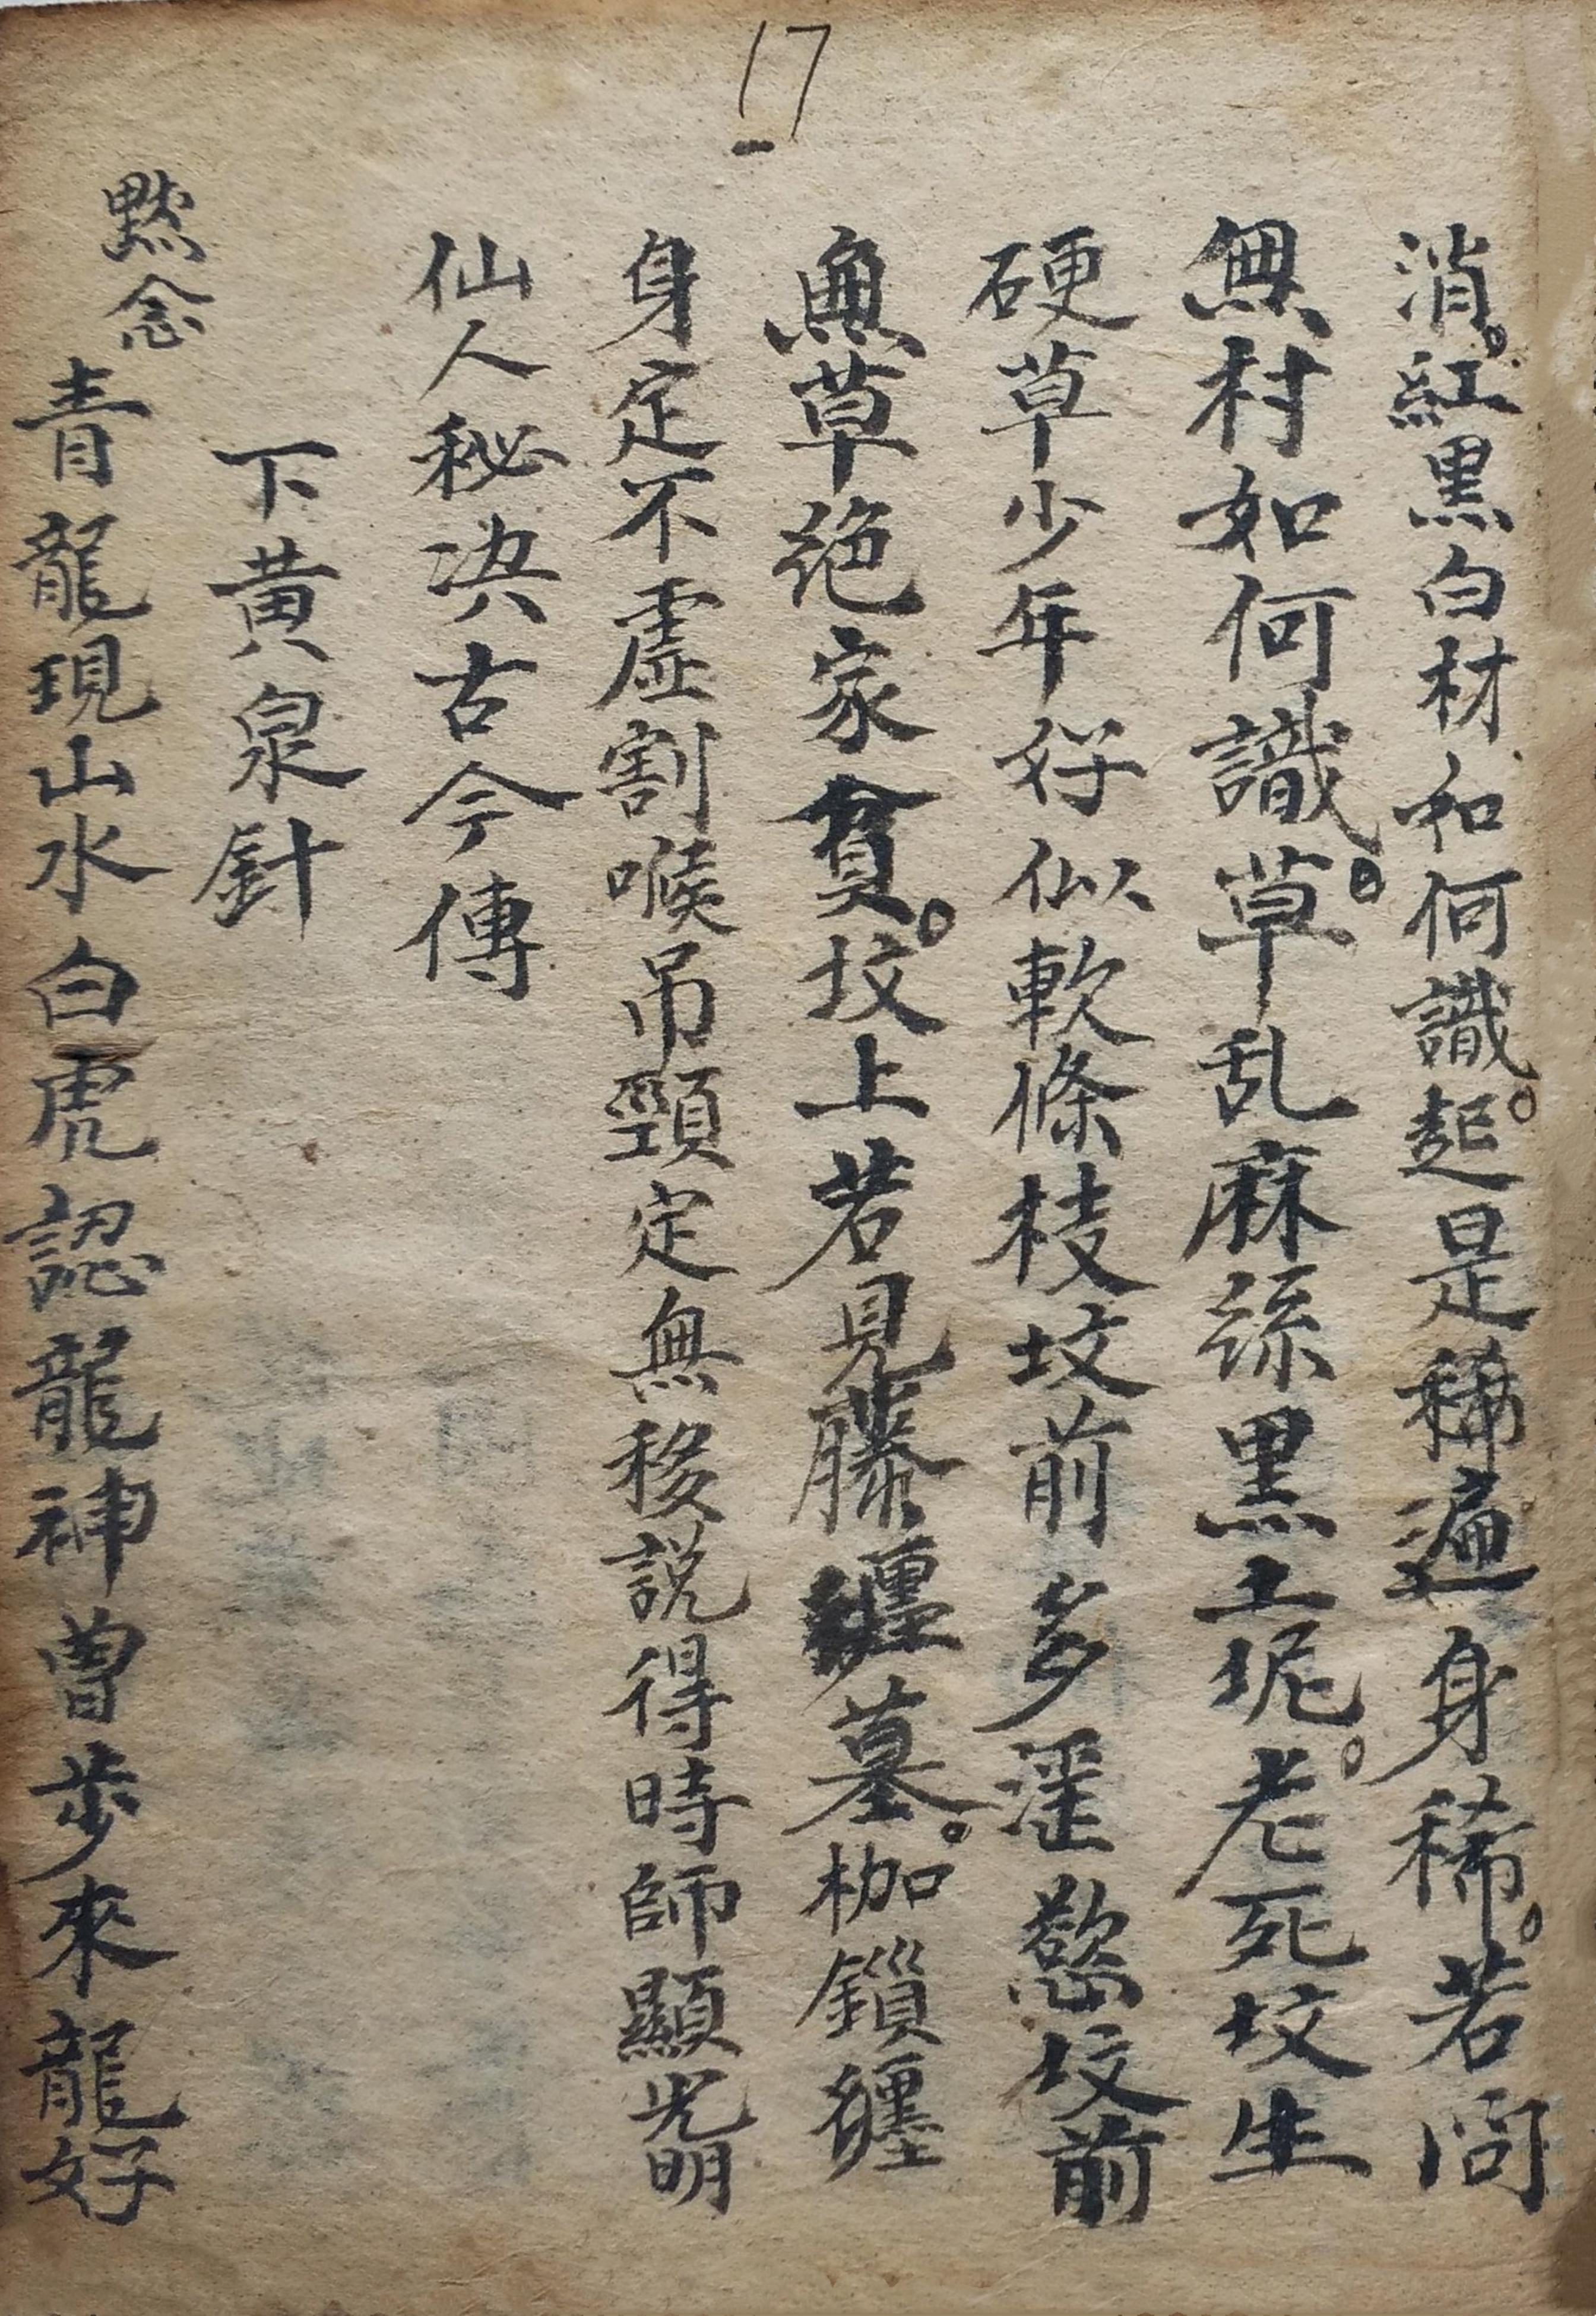 17
消。紅黑白材和何識。起是稀遍身稀。若問
無村如何識。草乱麻絲黑土坭。老死坟生
硬草少年好似軟條枝坟前多淫慾坟前
無草绝家貧。坟上若見藤纏墓。枷鎖纏
身定不虛割喉吊頸定無移說得時師顯光明
仙人秘决古今傳
下黄泉針
黙念
青龍現山水白虎認龍神曾步來龍好